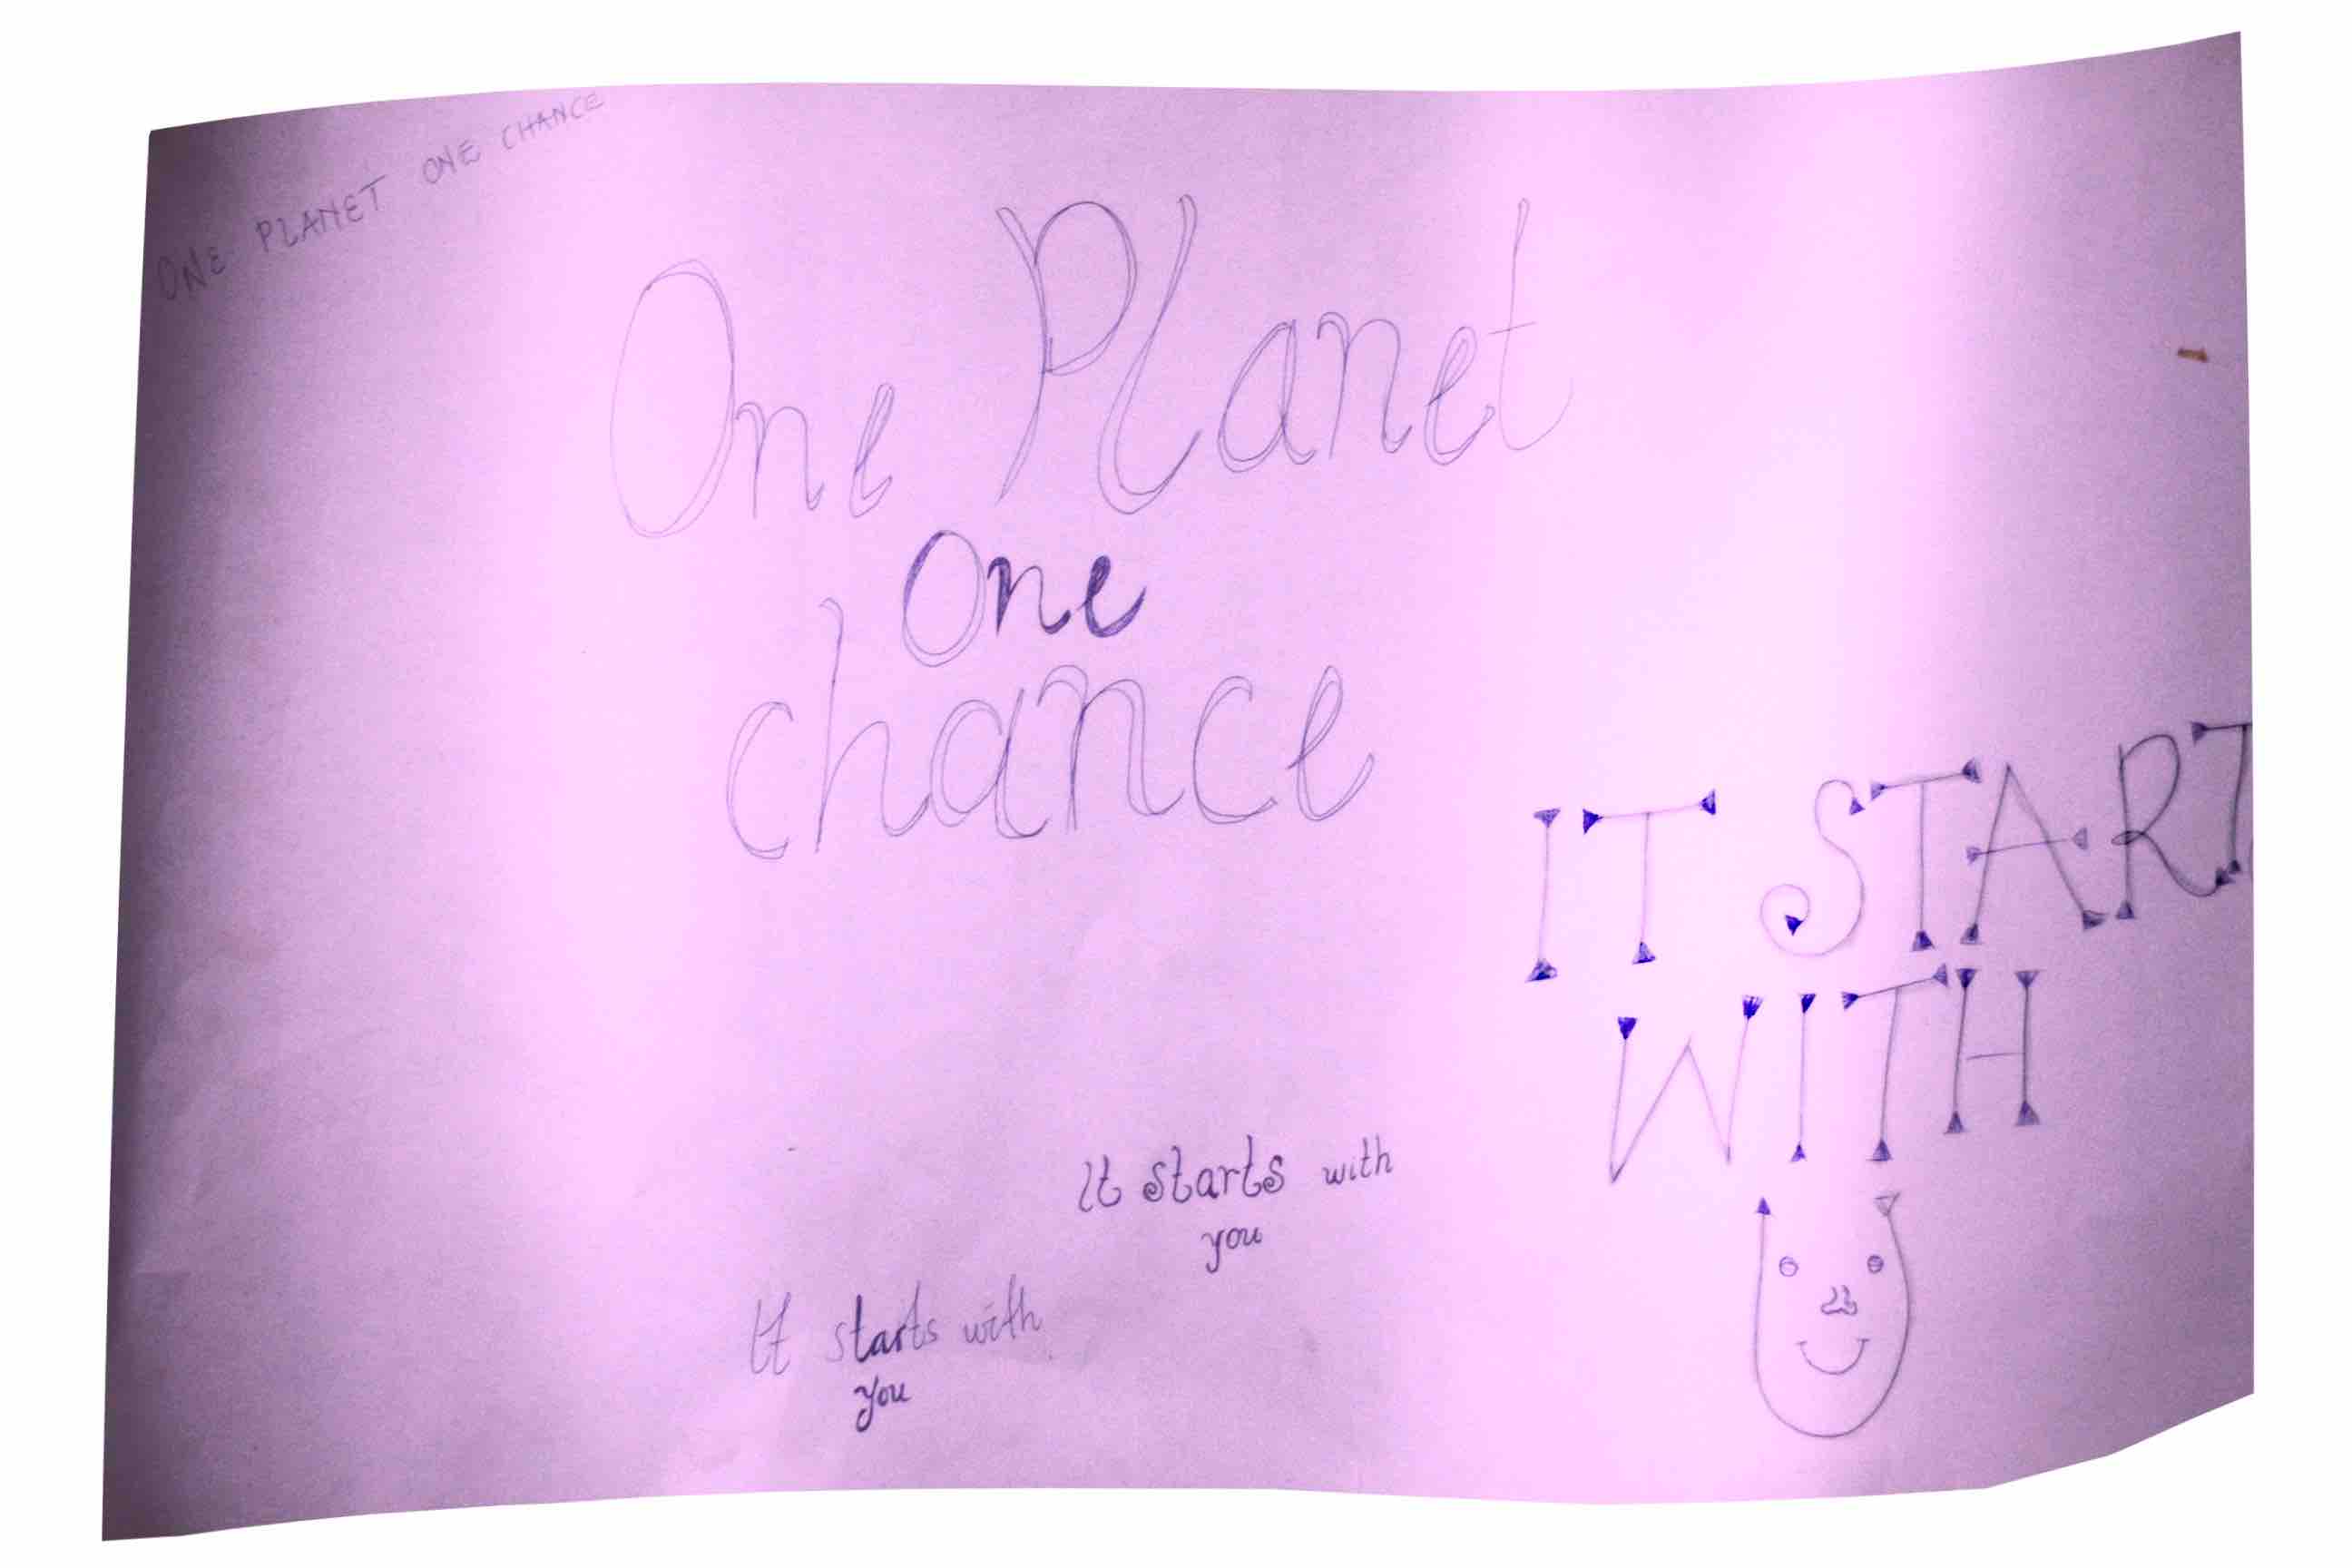 ONE PLANET ONE CHANCE
One Planet
One
chance
IT START
WITH
It starts with
you
It starts with
you